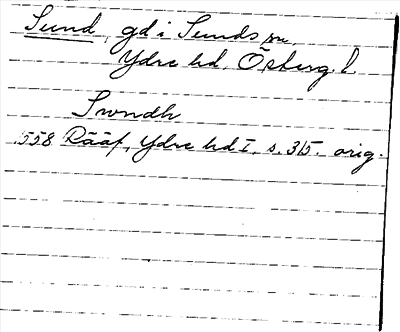 Sund, gd i Sunds sn
Ydre hd. Österg. l
Swndh
1558 Rääf, Ydre hd I, s. 315. orig.